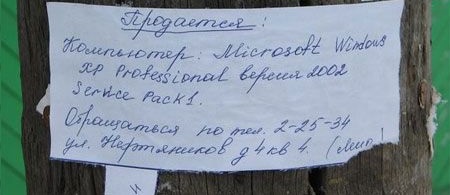 Продается:
Компьютер: Microsoft Windows
XP Professional версия 2002
Service Pack1.
Обращаться по тел. 2-25-34
ул. Нефтяников д4 кв 4.